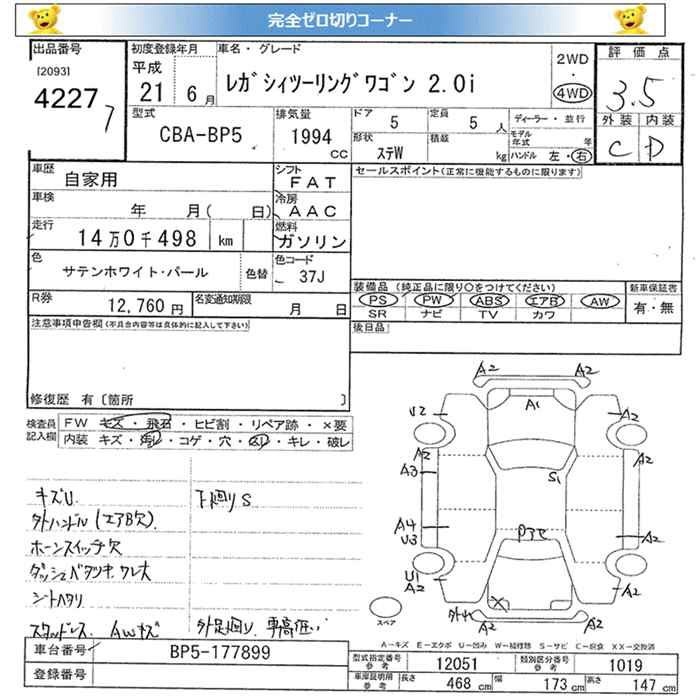 完全ゼロ切りコーナー
出品番号 初度登録年月 車名・グレード 2WD 評価点
[2093] 平成 レガシィツーリングワゴン 2.0i ・
4227 7 21 6月 4WD 3.5
型式 排気量 ドア 5 定員 5人 ディーラー・並行 外装 内装
CBA-BP5 1994 cc 形状 ステW 積載 kg モデル年式 年 C D
ハンドル 左・右
車歴 自家用 シフト FAT セールスポイント(正常に機能するものに限ります)
車検 年 月( 日) 冷房 AAC
走行 14万0千498 km 燃料 ガソリン
色 サテンホワイト・パール 色替 色コード 37J
装備品 (純正品に限り○をつけてください) 新車保証書
R券 12,760円 名変通知期限 月 日 PS PW ABS エアB AW 有・無
SR ナビ TV カワ
注意事項申告欄(不具合内容等は具体的に記入して下さい) 後日品
修復歴 有〔箇所 〕
検査員記入欄 FW キズ・飛石・ヒビ割・リペア跡・×要
内装 キズ・汚レ・コゲ・穴・スリ・キレ・破レ
キズU 下廻りS
外ハンドル (エアB欠)
ホーンスイッチ欠
ダッシュベタツキ、ワレ大
シートヘタリ
スタッドレス、AWキズ 外足廻り、車高低い
A2 A2
A1
U2 A2
A2 A2
A3
S1
A4
U3 A2
U1
A2 A2
A2 A2
スペア
A-キズ E-エクボ U-凹み W-補修跡 S-サビ C-腐食 XX-交換済
車台番号 BP5-177899
登録番号
型式指定番号 参考 12051 類別区分番号 参考 1019
車庫証明用 参考 長さ 468cm 幅 173cm 高さ 147cm